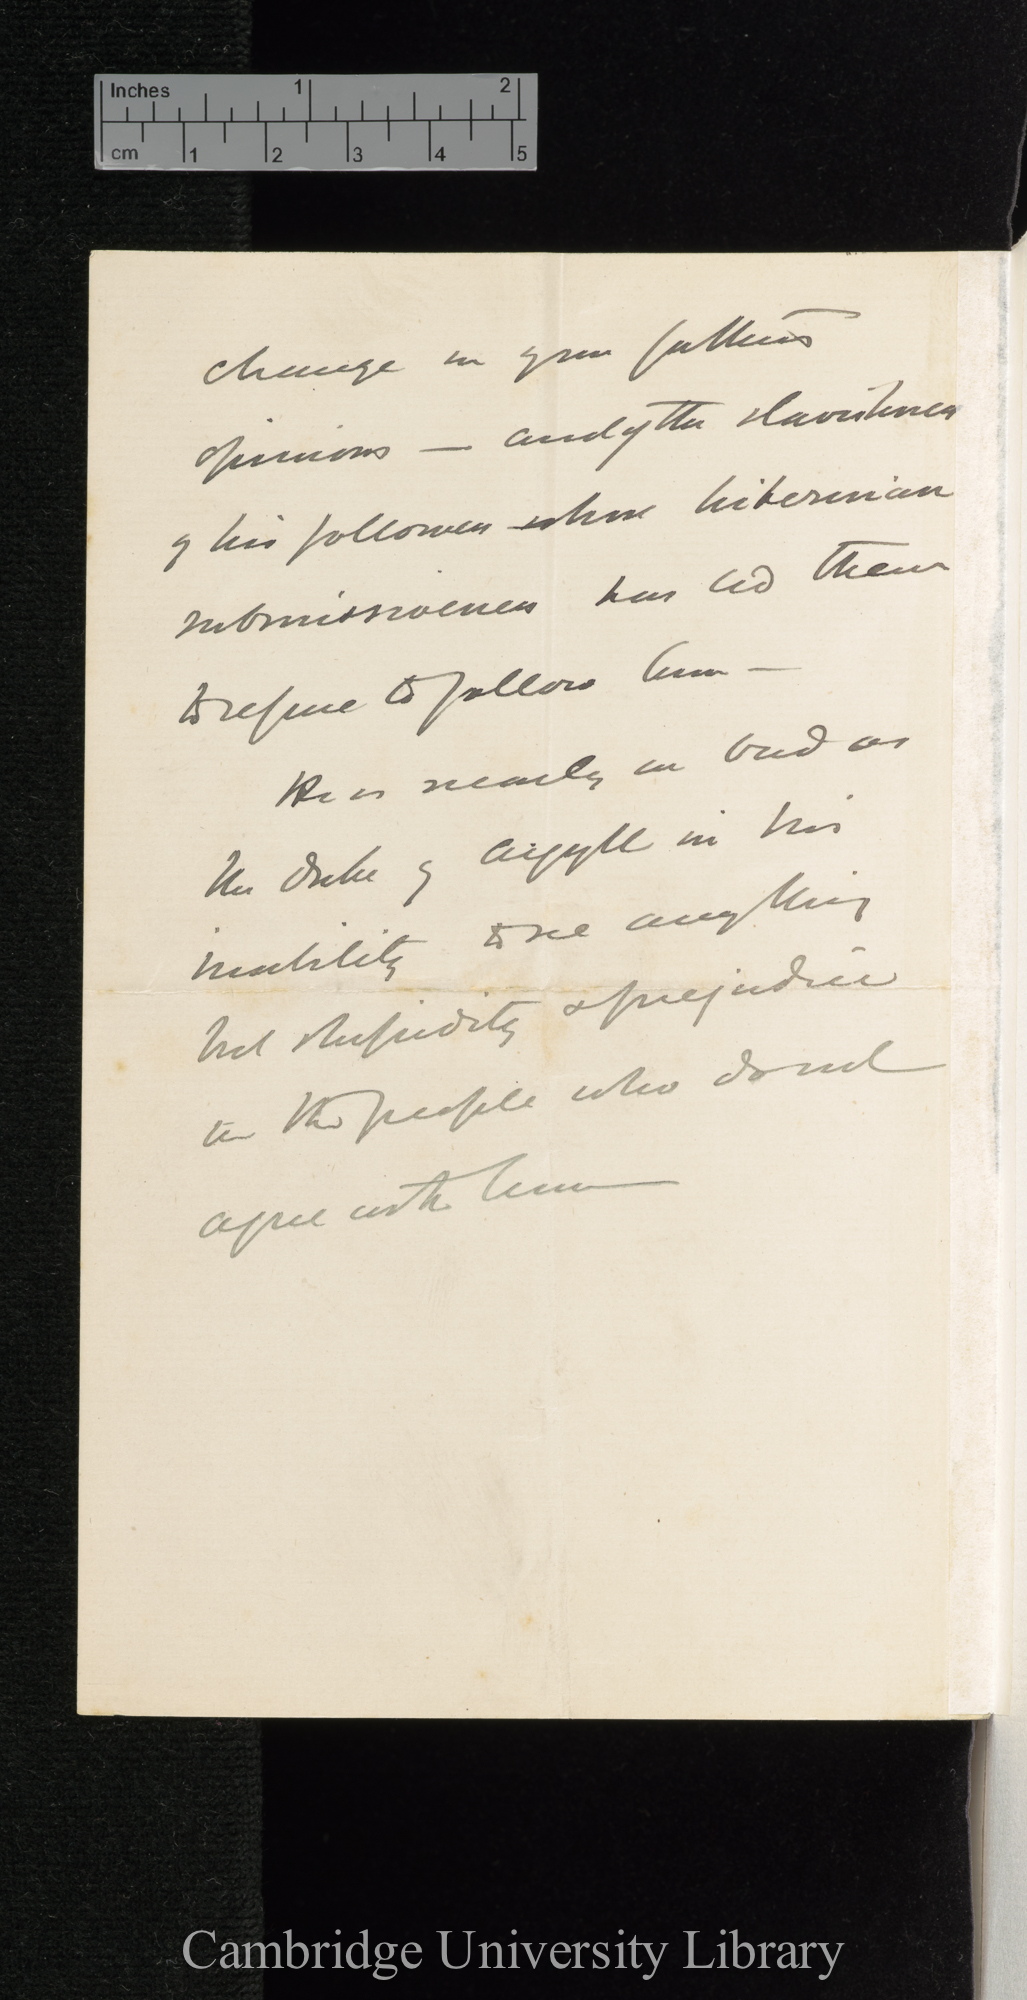 Inches 1 2
cm 1 2 3 4 5
change in your father's
opinions — and of the slavishness
of his followers whose hibernian
submissiveness has led them
to refuse to follow him —
He is nearly as bad as
the Duke of Argyll in his
inability to see anything
but stupidity & prejudice
in the people who do not
agree with him —
Cambridge University Library